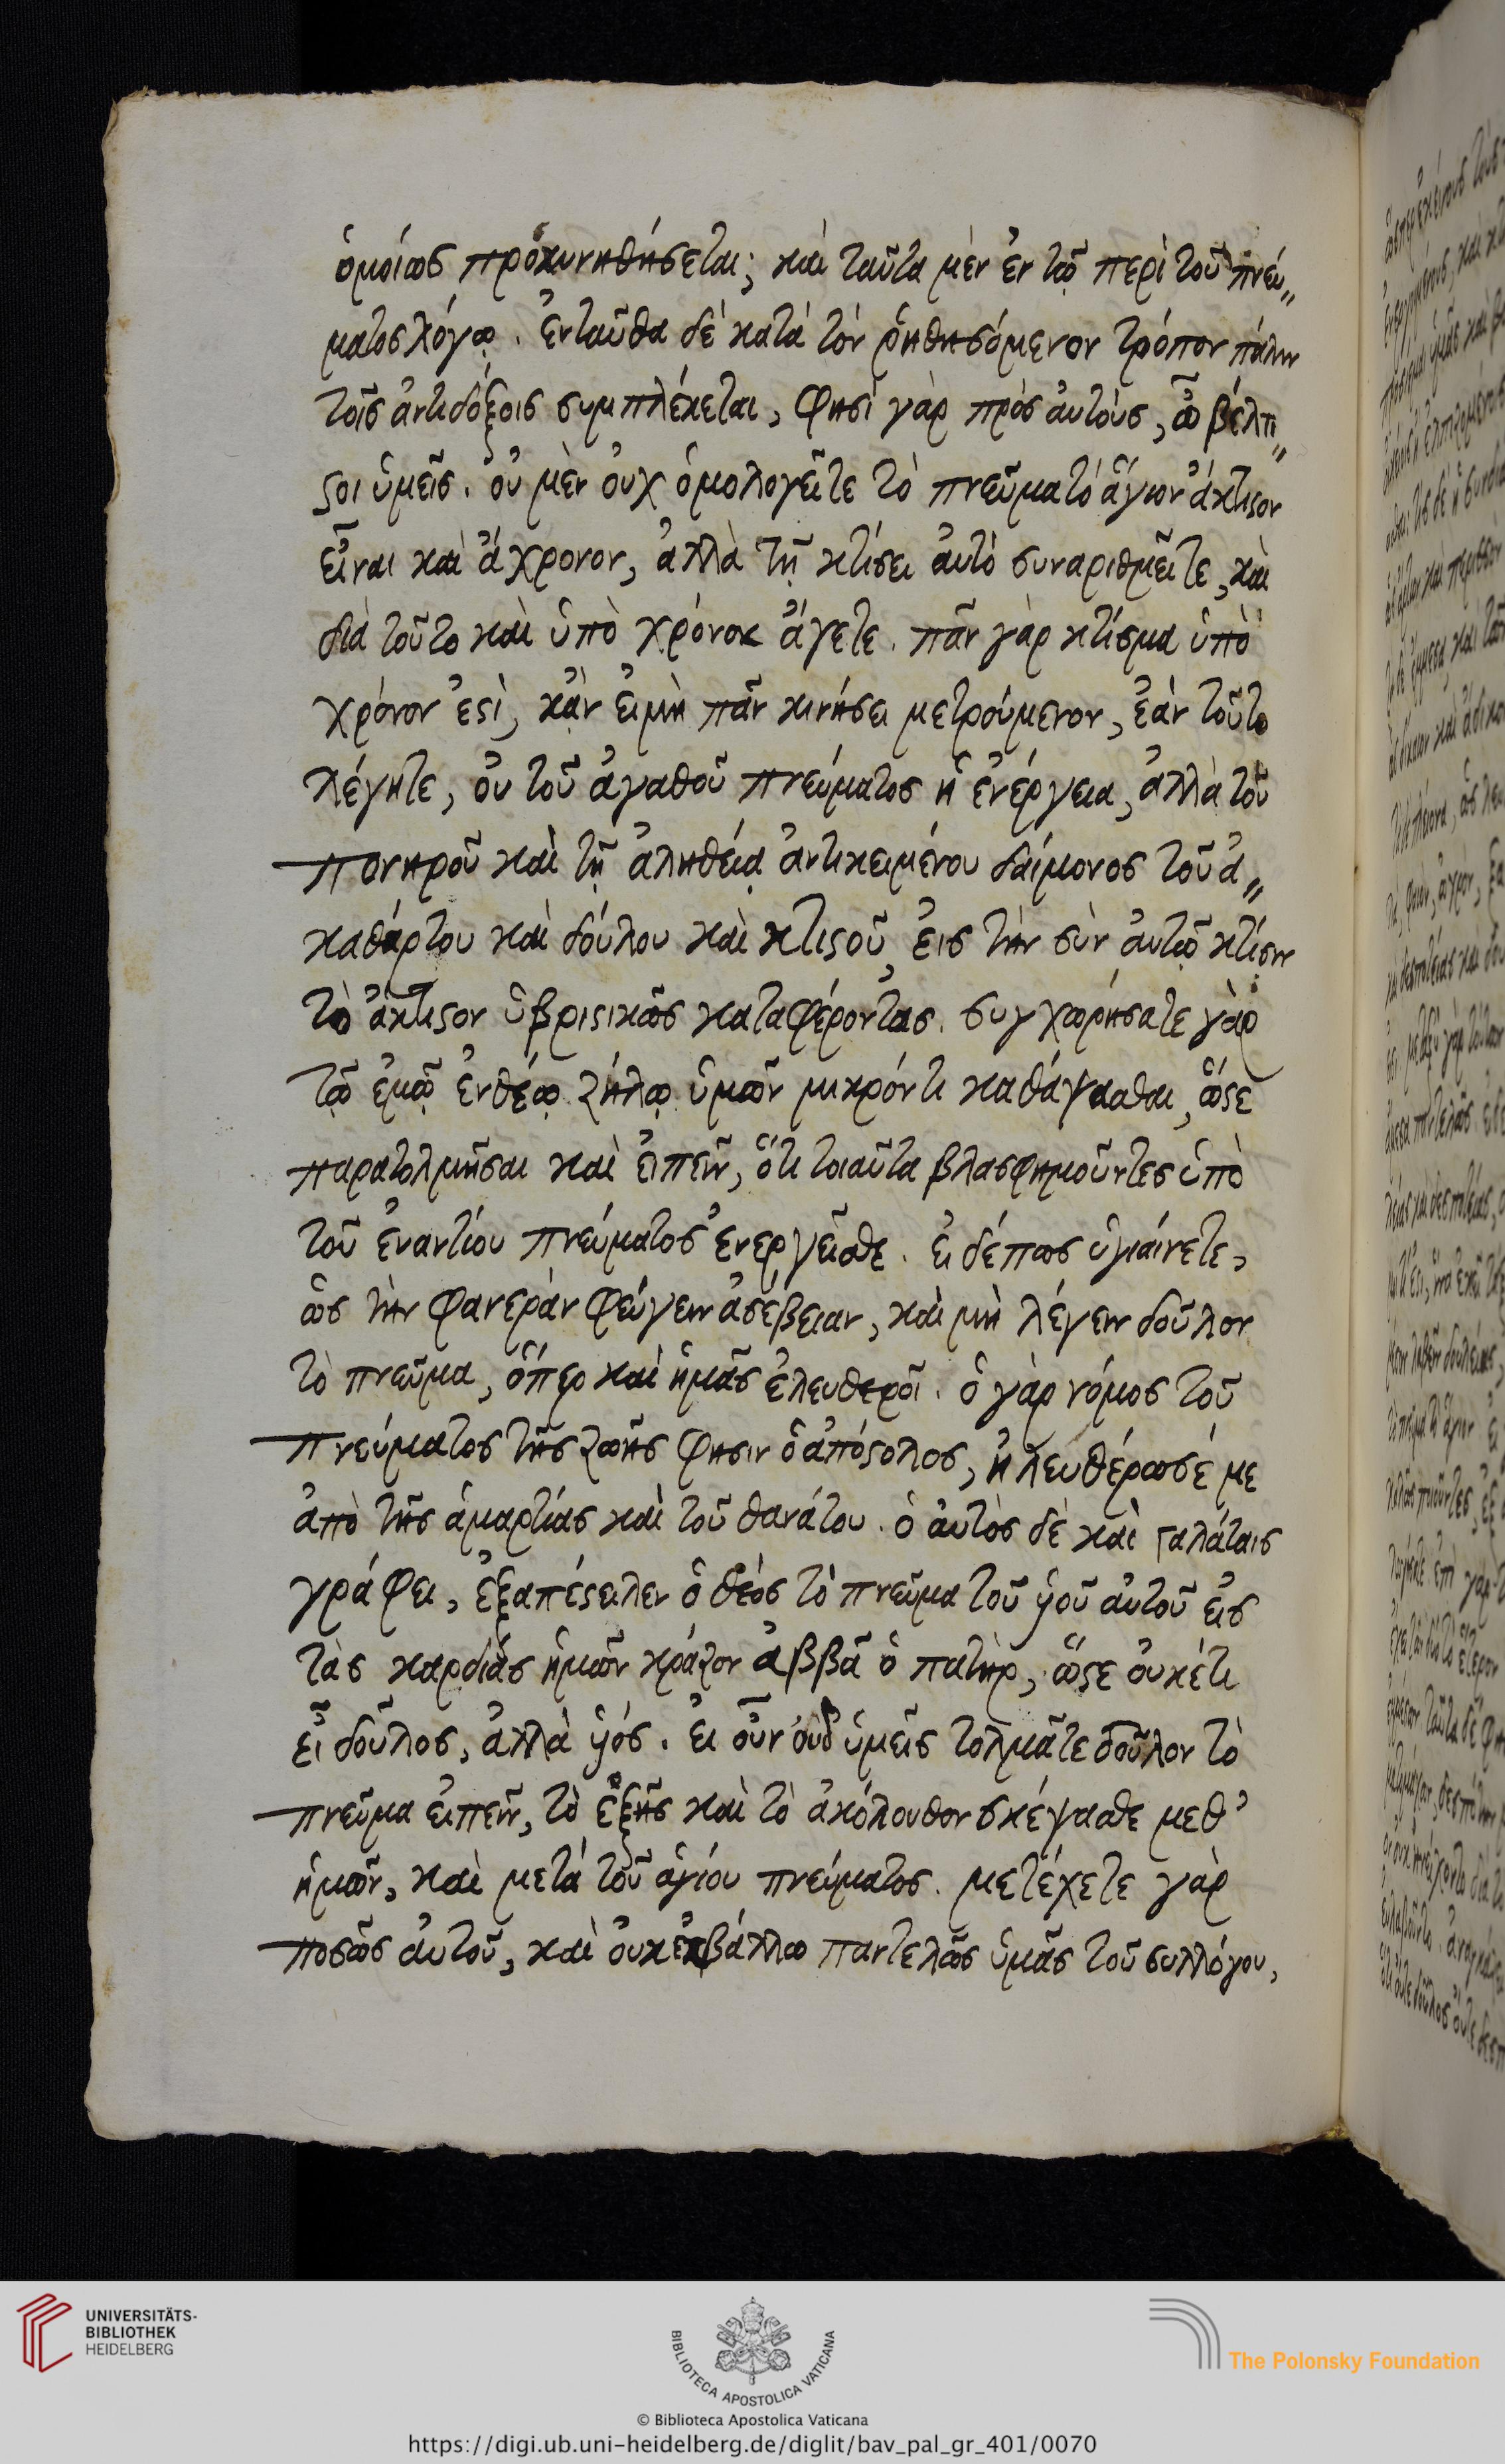 ὁμοίως προσκυνηθήσεται; καὶ ταῦτα μὲν ἐν τῷ περὶ τοῦ πνεύ„
ματος λόγῳ. ἐνταῦθα δὲ κατὰ τὸν ῥηθησόμενον τρόπον πάλιν
τοῖς ἀντιδόξοις συμπλέκεται, φησὶ γὰρ πρὸς ἀυτοὺς, ὦ βέλτι„
ϛοι ὑμεῖς. ὀυ μὲν ὀυχ ὁμολογεῖτε τὸ πνεῦμα τὸ ἅγιον ἄκτιϛον
εἶναι καὶ ἄχρονον, ἀλλὰ τῇ κτίσει ἀυτὸ συναριθμεῖτε, καὶ
διὰ τοῦτο καὶ ὑπὸ χρόνον ἄγετε. πᾶν γὰρ κτίσμα ὑπὸ
χρόνον ἐϛὶ, κᾂν ἐιμὴ πᾶν κινήσει μετρούμενον, ἐὰν τοῦτο
λέγητε, ὀυ τοῦ ἀγαθοῦ πνεύματος ἡ ἐνέργεια, ἀλλὰ τοῦ
πονηροῦ καὶ τῇ ἀληθείᾳ ἀντικειμένου δαίμονος τοῦ ἀ„
καθάρτου καὶ δούλου καὶ κτιϛοῦ, ἐις τὴν σὺν ἀυτῷ κτίσιν
τὸ ἄκτιϛον ὑβριϛικῶς καταφέροντας. συγχωρήσατε γὰρ
τῷ ἐμῷ ἐνθέῳ ζήλῳ ὑμῶν μικρόν τι καθάψασθαι, ὥϛε
παρατολμῆσαι καὶ ἐιπεῖν, ὅτι τοιαῦτα βλασφημοῦντες ὑπὸ
τοῦ ἐναντίου πνεύματος ἐνεργεῖσθε. ἐι δέ πως ὑγιάινετε,
ὡς τὴν φανερὰν φεύγειν ἀσέβειαν, καὶ μὴ λέγειν δοῦλον
τὸ πνεῦμα, ὅπερ καὶ ἡμᾶς ἐλευθεροῖ. ὁ γὰρ νόμος τοῦ
πνεύματος τῆς ζωῆς φησιν ὁ ἀπόϛολος, ἠλευθέρωσέ με
ἀπὸ τῆς ἁμαρτίας καὶ τοῦ θανάτου. ὁ ἀυτὸς δὲ καὶ γαλάταις
γράφει, ἐξαπέϛειλεν ὁ θεὸς τὸ πνεῦμα τοῦ υἱοῦ ἀυτοῦ ἐις
τὰς καρδίας ἡμῶν κράζον ἀββᾶ ὁ πατὴρ, ὥϛε ὀυκέτι
εἶ δοῦλος, ἀλλὰ υἱός. ἐι οὖν ὀυδ ὑμεῖς τολμᾶτε δοῦλον τὸ
πνεῦμα ἐιπεῖν, τὸ ἑξῆς καὶ τὸ ἀκόλουθον σκέψασθε μεθ᾽
ἡμῶν, καὶ μετὰ τοῦ ἁγίου πνεύματος. μετέχετε γὰρ
ποσῶς ἀυτοῦ, καὶ ὀυκ ἐκβάλλω παντελῶς ὑμᾶς τοῦ συλλόγου,
UNIVERSITÄTS-
BIBLIOTHEK
HEIDELBERG
BIBLIOTECA APOSTOLICA VATICANA
The Polonsky Foundation
© Biblioteca Apostolica Vaticana
https://digi.ub.uni-heidelberg.de/diglit/bav_pal_gr_401/0070